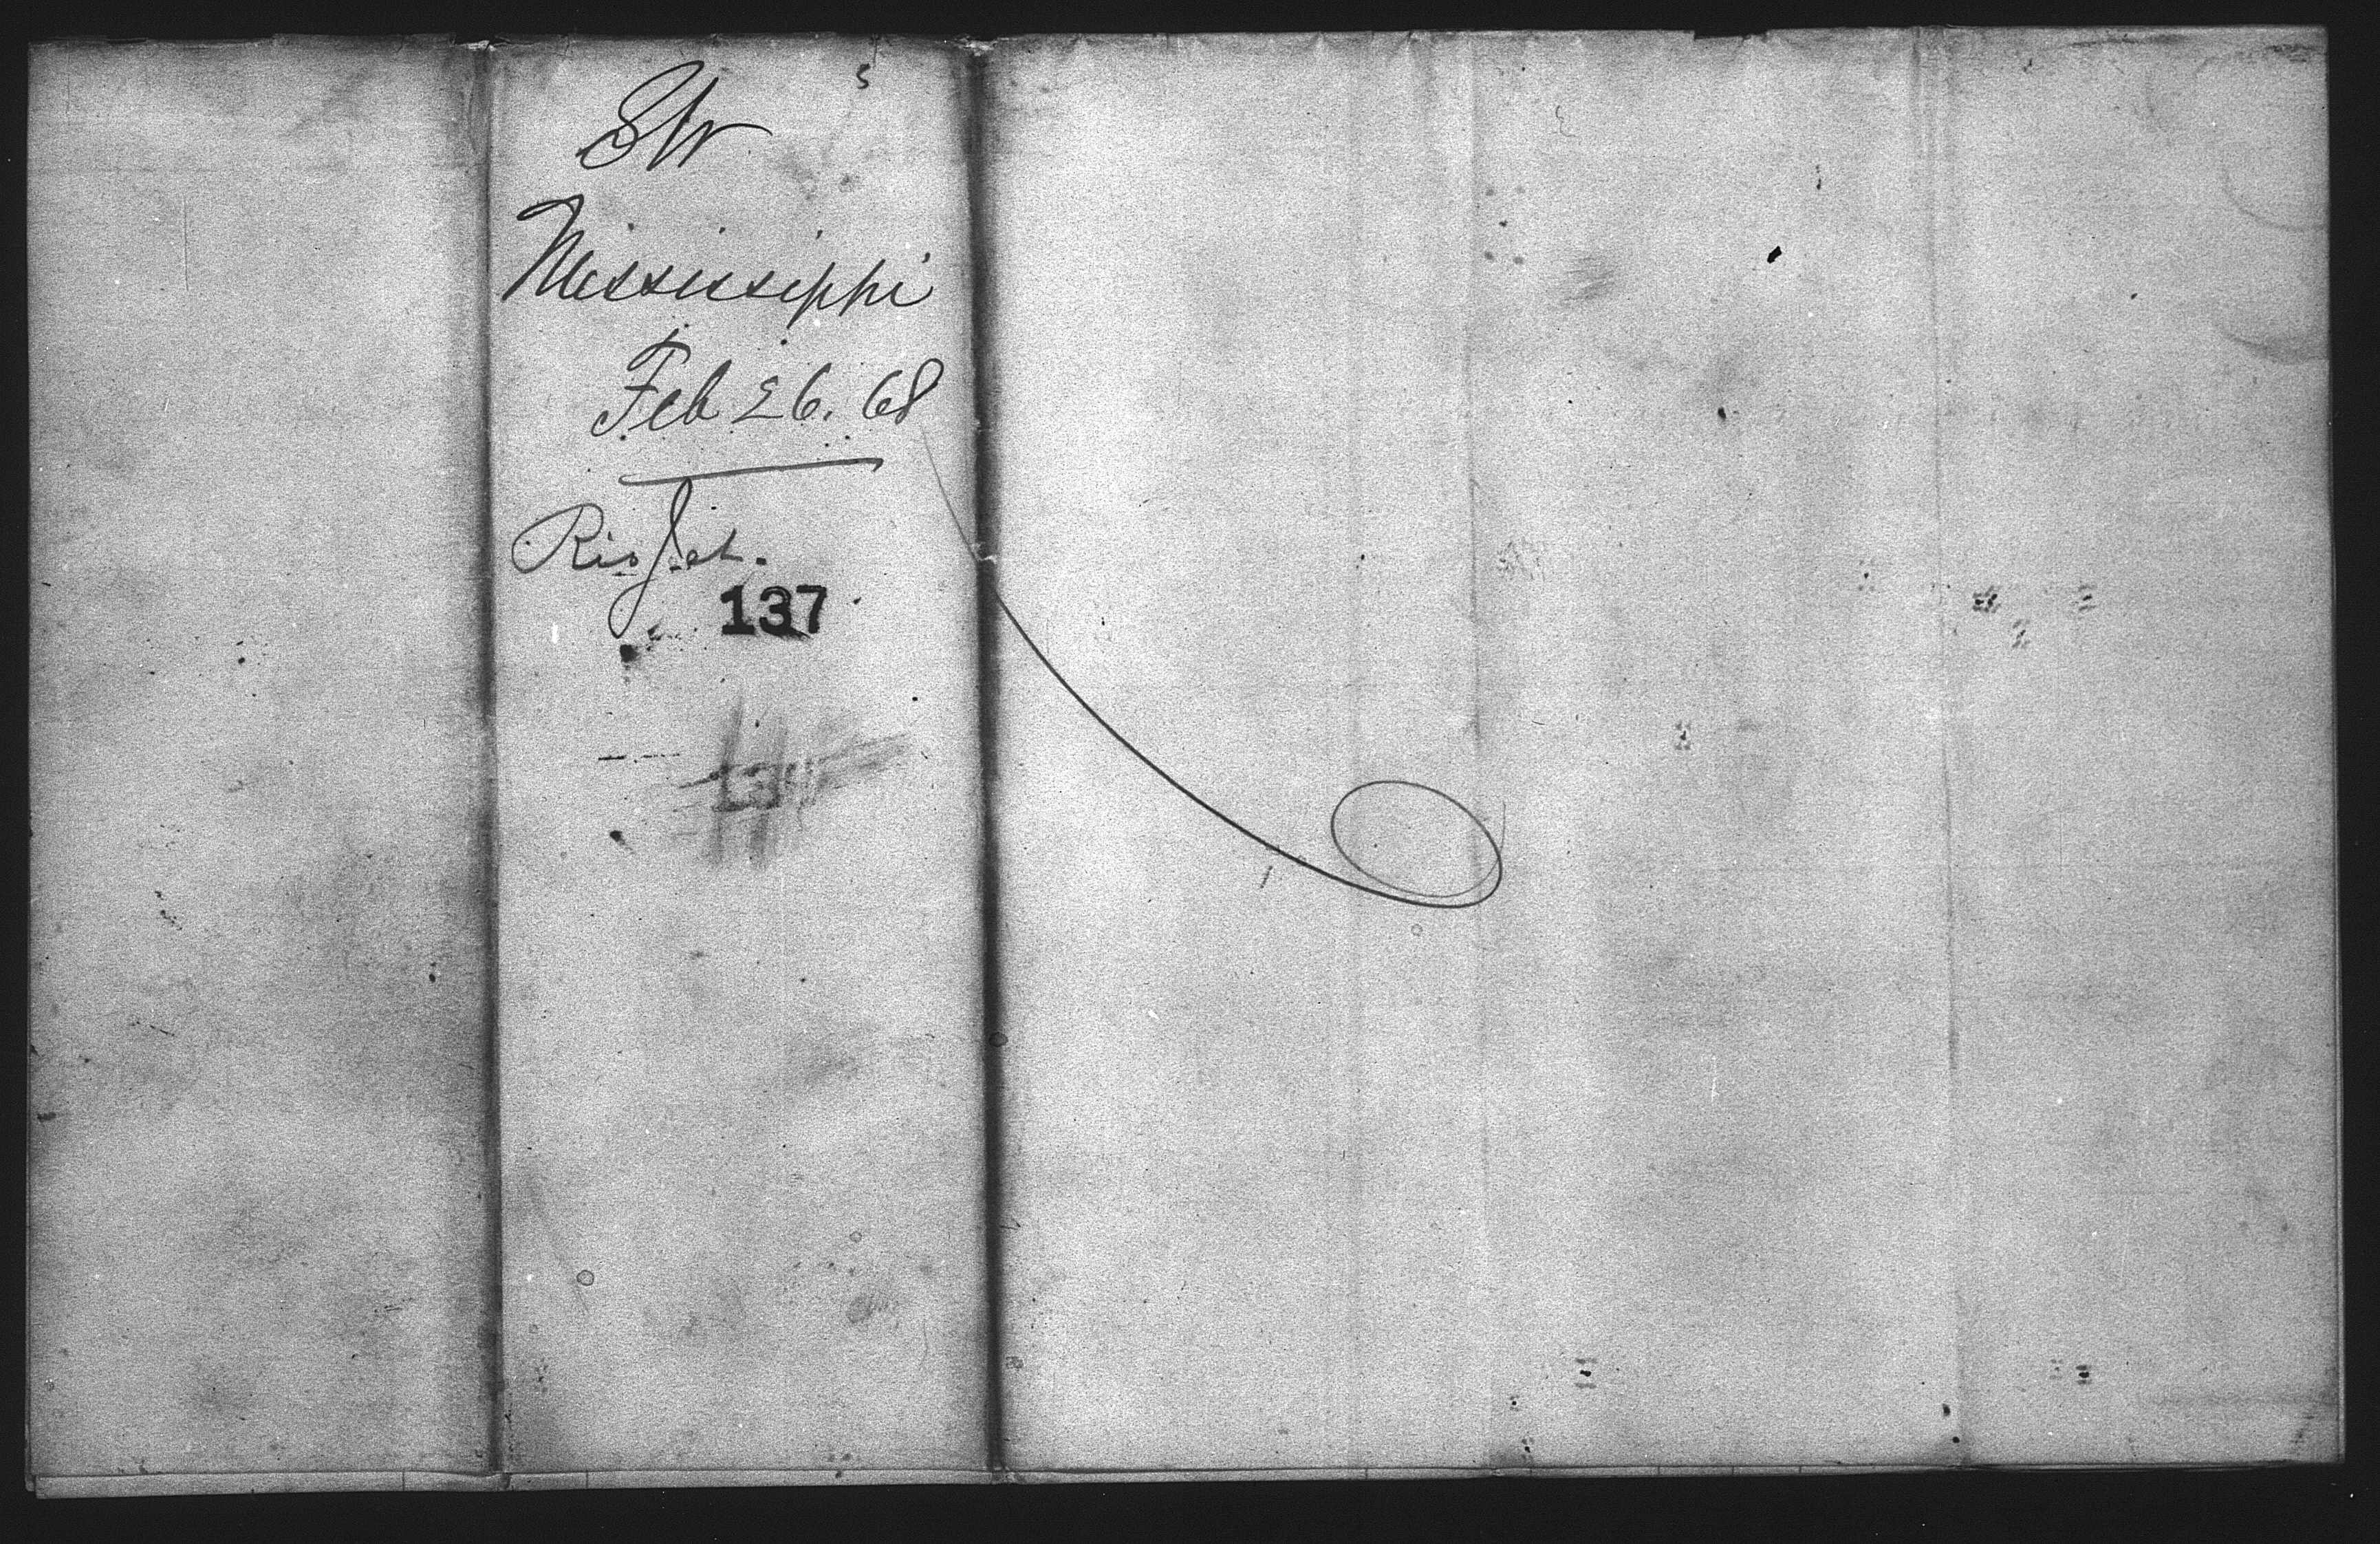 SW
Mississippi
Feb 26. 68
Ris Jet.
137